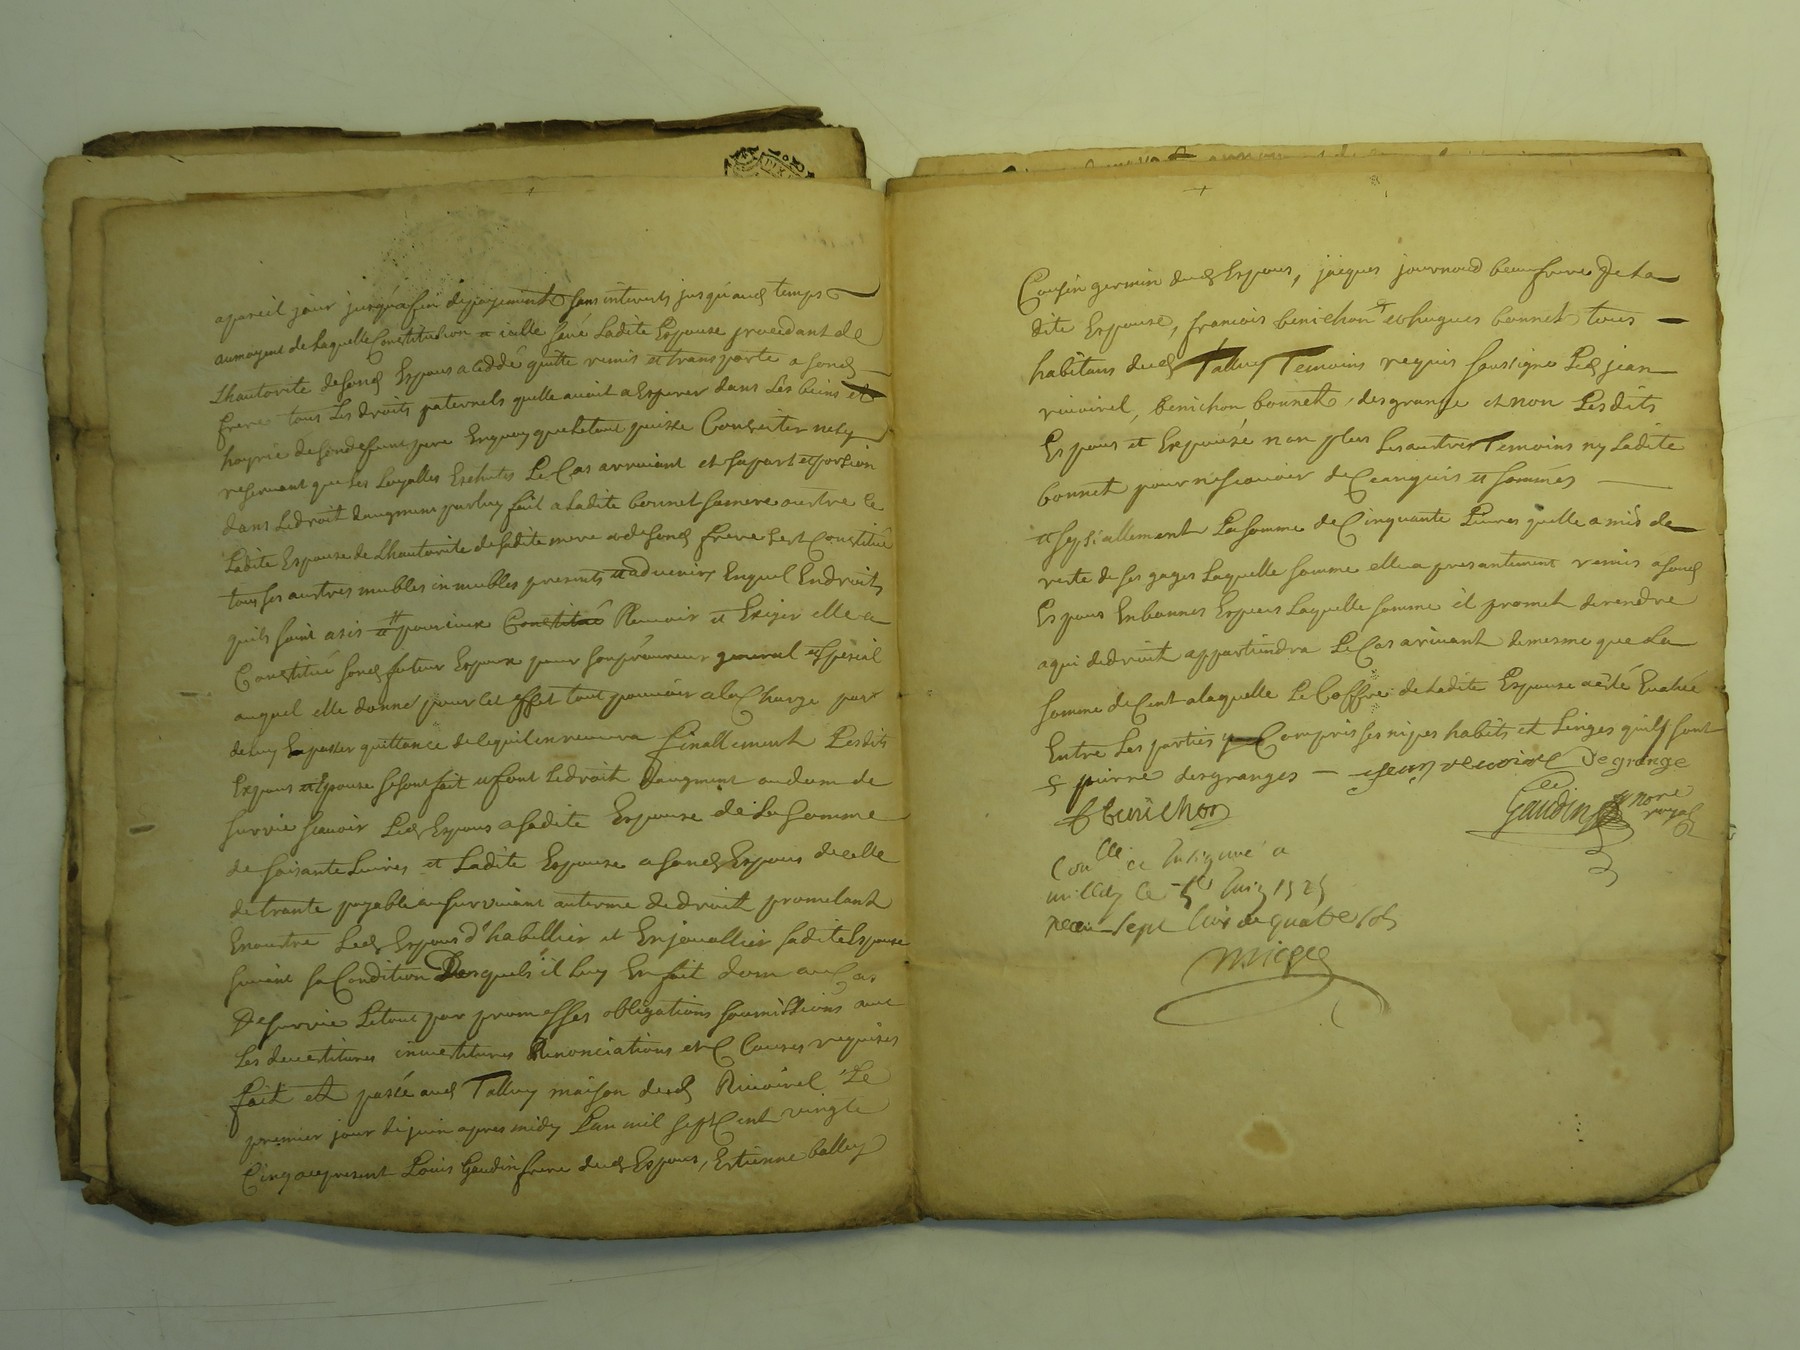 apareil jour jusqu'a fin de paiement sans interests jusqu'aud temps
au moyent de laquelle Constitution a icelle faite Ladite Espouse procedant de
L'hautorité de sond Espoux a ceddé quitte remis et transporté a sond
frere tous Les droits paternels quelle avoit a Esperer dans Les biens et
hoyrie de son defunt pere En quoy que le tout puisse Consister ne sy
reservant que Les Loyalles Escheutes Le Cas arrivant et sa part et portion
dans Le droit d'augment par luy fait a ladite bonnet sa mere outre ce
Ladite Espouse de L'hautorité de sadite mere et de sond frere s'est Constitué
tous ses autres meubles inmeubles presents et advenir En quel Endroits
quils soint asis et pour iceux Constitué Recevoir et Exiger elle a
Constitué sond futeur Espoux pour son procureur general et special
auquel elle donne pour cet effet tout pouvoir a la Charge par
de luy En passer quittance de ce quil en recevra finallement Lesdits
Espoux et Epouse se sont fait et font Le droit d'augment ou dom de
survie scavoir Led Espoux a sadite Espouse de La somme
de soisante Livres et Ladite Espouse a sond Espoux de celle
de trante payable au survivant au terme de droit promettant
En outre Led Espoux d'habillier et Enjouallier sadite Espouse
suivant sa Condition Desquels il luy En fait dom au Cas
De survie Le tout par promesses obligations soumissions avec
Les devestitures investitures Renonciations et Clauses requises
fait et passé aud Talluy maison dud Rivoirel Le
premier jour de juin apres midy L'an mil sept Cent vingt
Cinq en presence Louis Gaudin frere dud Espoux, Estienne balley
Cousin germin dud Espoux, jacques journoud beaufrere De La
dite Espouse, francois benichon et hugues bonnet tous
habitans dud Talluy Temoins requis sousigné Led jean
rivoirel, benichon bonnet, desgrange et non Lesdits
Espoux et Espouse non plus Les autres Temoins ny Ladite
bonnet pour ne scavoir de Ce enquis et sommés
et speciallement La somme de Cinquante Livres quelle a mis de
reste de ses gages Laquelle somme elle a presantement remis a sond
Espoux En bonnes Especes Laquelle somme il promet de rendre
a qui de droit appartiendra Le Cas arivant de mesme que La
somme de Cent a laquelle Le Coffre de Ladite Espouse a eté Evalué
Entre Les parties y Compris ses nipes habits et Linges quils sont
& pierre desgranges — Jean revoirel Degrange
f benichon
Gaudin no.re royal
Con.lle et Insinué a
milley le 5 Juin 1725
Receu sept livres quatre sols